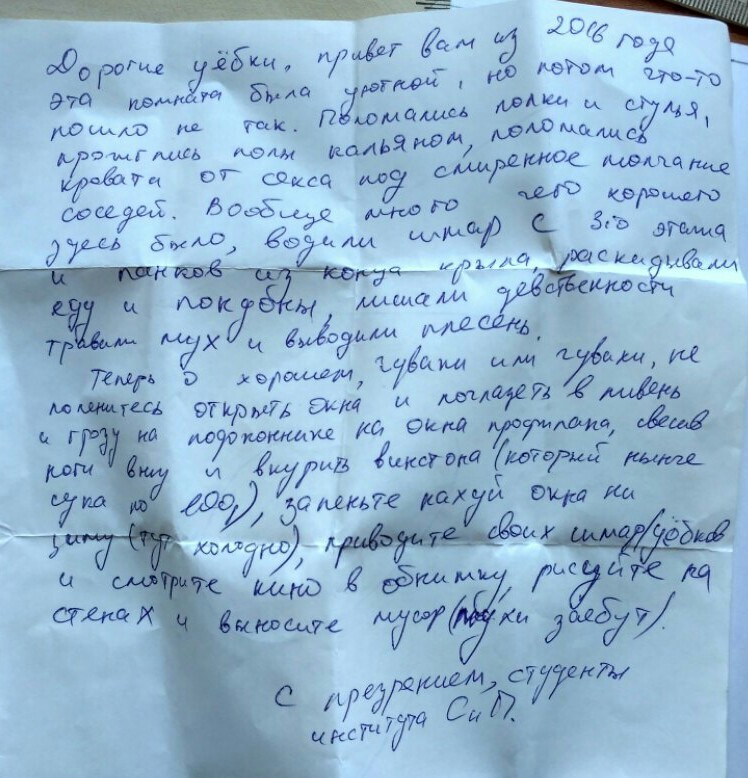 Дорогие уёбки, привет вам из 2016 года
эта комната была уютной, но потом что-то
пошло не так. Поломались полки и стулья,
прожглись полы кальяном, поломались
кровати от секса под смиренное молчание
соседей. Вообще много чего хорошего
здесь было, водили шмар с 3го этажа
и панков из конца крыла, раскидывали
еду и лишали девственности
травили мух и выводили плесень.
Теперь о хорошем, чуваки или чувихи, не
поленитесь открыть окна и поглазеть в ливень
и грозу на подоконнике на окна профилака, свесив
ноги вниз и вкурить винстона (который нынче
сука по 100р), запеньте нахуй окна на
зиму (тут холодно), приводите своих шмар/уёбков
и смотрите кино в обнимку, рисуйте на
стенах и выносите мусор (мухи заебут).
С презрением, студенты
института СиП.